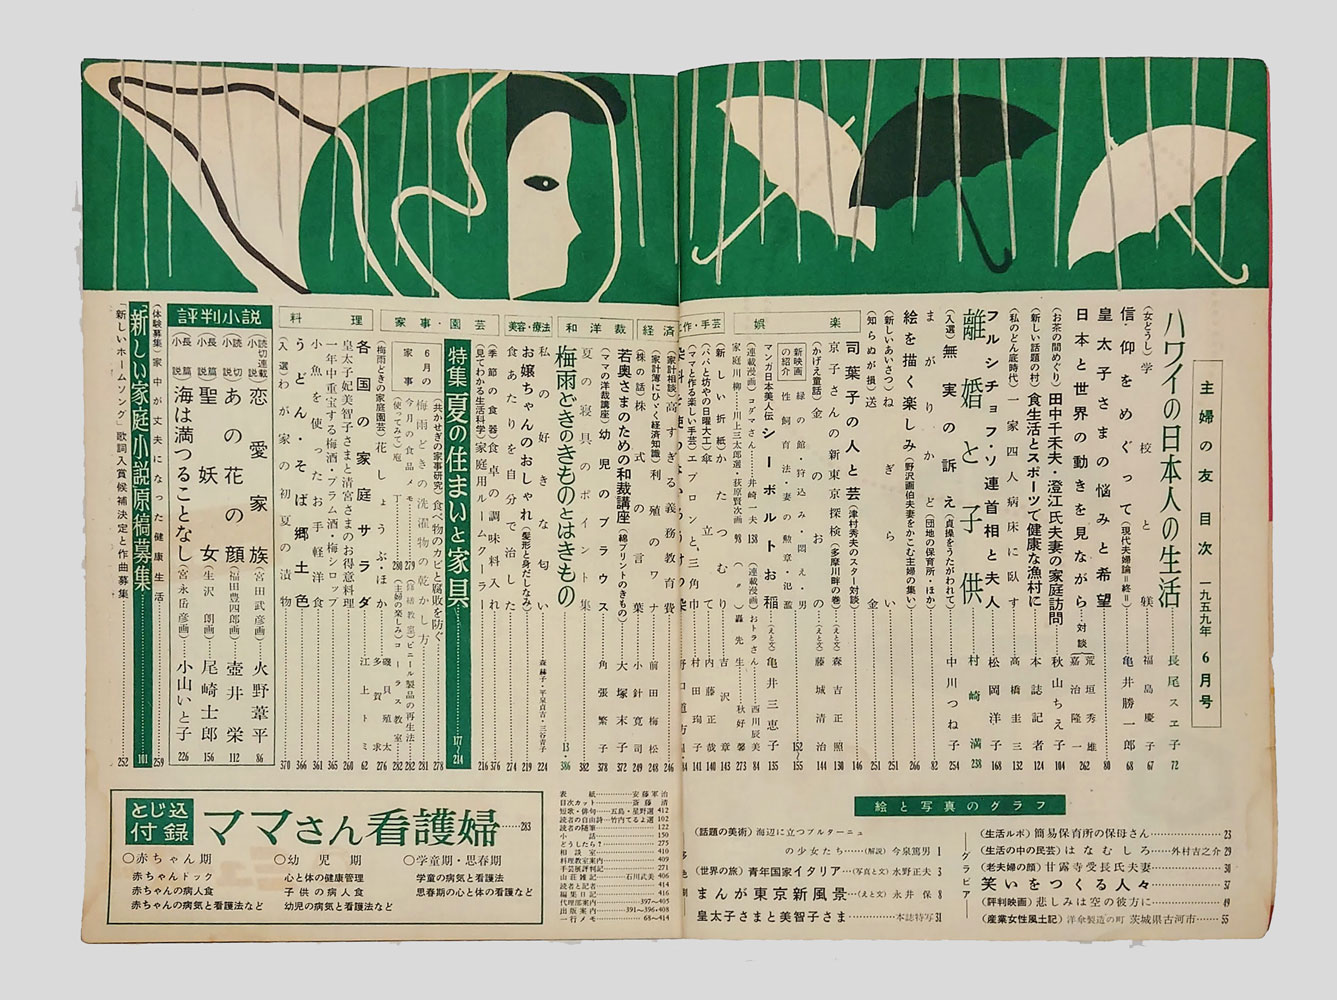 主婦の友 目次 一九五九年 6月号
ハワイの日本人の生活……長尾スヱ子 72
(女どうし)学校と躾……福島慶子 67
信仰をめぐって(現代夫婦論=終=)……亀井勝一郎 68
皇太子さまの悩みと希望
日本と世界の動きを見ながら……対談 荒垣秀雄 嘉治隆一 80
(お茶の間めぐり)田中千禾夫・澄江氏夫妻の家庭訪問……秋山ちえ子 104
(新しい話題の村)食生活とスポーツで健康な漁村に……本誌記者 124
(私のどん底時代)一家四人病床に臥す……高橋圭三 132
フルシチョフ・ソ連首相と夫人……松岡洋子 168
離婚と子供……村崎満 238
(入選)無実の訴え(貞操をうたがわれて)……中川つね子 254
まがりかど(団地の保育所・ほか)……82
絵を描く楽しみ(野沢画伯夫妻をかこむ主婦の集い)……266
(新しいあいさつ)ねぎらい……251
(知らぬが損)送金……251
娯楽
司葉子の人と芸(津村秀夫のスター対談)……146
京子さんの新東京探検(多摩川畔の巻)……(え と文)森吉正照 130
(かげえ童話)金のおの……(え と文)藤城清治 144
新映画の紹介
緑の館・狩込み・悶え・男
性飼育法・妻の勲章・氾濫……152〜155
マンガ日本美人伝 シーボルトお稲……(え と文)亀井三恵子 135
(連載漫画)コダマさん……井崎一夫 138
(連載漫画)おトラさん……西川辰美 84
家庭川柳……川上三太郎選・荻原賢次画 93
(〃)轟先生……秋好馨 273
工作・手芸
新しい折紙かたつむり……吉沢章 143
(パパと坊やの日曜大工)傘立て……内藤正哉 140
(ママと作る楽しい手芸)エプロンと三角巾……村田珣子 141
経済
(家計相談)高すぎる義務教育費……246
(家計簿にひゞく経済知識)利殖のワナ……前田梅松 248
(株の話)株式の言葉……小針寛司 249
和洋裁
若奥さまのための和裁講座(綿プリントのきもの)……大塚末子 372
(ママの洋裁講座)幼児のブラウス……角張繁子 378
夏の寝具のポイント集……382
梅雨どきのきものとはきもの……13 386
美容・療法
私の好きな匂い……森赫子・平泉貞吉・三谷青子 224
お嬢ちゃんのおしゃれ(髪形と身だしなみ)……219
食あたりを自分で治した……274
家事・園芸
(季節の食器)食卓の調味料入れ……376
(見てわかる生活科学)家庭用ルームクーラー……216
特集 夏の住まいと家具……177〜214
(共かせぎの家事研究)食べ物のカビと腐敗を防ぐ……278
6月の家事
梅雨どきの洗濯物の乾かし方……281
今月の食品メモ……279
(修繕教室)ビニール製品の再生法……282
(使ってみて)庖丁……280
(主婦の楽しみ)コーラス教室……282
(梅雨どきの家庭園芸)花しょうぶ・ほか……磯貝殖太 多賀求 276
料理
各国の家庭サラダ……江上トミ 62
皇太子妃美智子さまと清宮さまのお得意料理……260
一年中重宝する梅酒・プラム酒・梅シロップ……365
小魚を使ったお手軽洋食……361
うどん・そば郷土色……366
(入選)わが家の初夏の漬物……370
評判小説
読切連載小説 恋愛家族(宮田武彦画)……火野葦平 86
読切小説 あの花の顔(福田豊四郎画)……壺井栄 112
長篇小説 聖妖女(生沢朗画)……尾崎士郎 156
長篇小説 海は満つることなし(宮永岳彦画)……小山いと子 226
(体験募集)家中が丈夫になった健康生活……259
「新しい家庭」小説原稿募集……101
「新しいホームソング」歌詞入賞候補決定と作曲募集……252
絵と写真のグラフ
(話題の美術)海辺に立つブルターニュ
の少女たち……(解説)今泉篤男 1
(世界の旅)青年国家イタリア……(写真と文)水野正夫 3
まんが東京新風景……(えと文)永井保 8
皇太子さまと美智子さま……本誌特写 31
グラビア
(生活ルポ)簡易保育所の保母さん……23
(生活の中の民芸)はなむしろ……外村吉之介 29
(老夫婦の顔)甘露寺受長氏夫妻……30
笑いをつくる人々……37
(評判映画)悲しみは空の彼方に……49
(産業女性風土記)洋傘製造の町 茨城県古河市……55
表紙……安藤軍治
目次カット……斎藤清
短歌・俳句……五島・星野選 412
読者の自由詩……竹内てるよ選 102
読者の随筆……122
小話……150
どうしたら?……275
相談室……410
料理教室案内……409
手芸展評判記……271
山荘雑記……石川武美 406
読者と記者……414
編集日記……416
代理部案内……397〜405
出版案内……391〜396・408
一行メモ……68〜414
とじ込付録
ママさん看護婦……283
○赤ちゃん期
赤ちゃんドック
赤ちゃんの病人食
赤ちゃんの病気と看護法など
○幼児期
心と体の健康管理
子供の病人食
幼児の病気と看護法など
○学童期・思春期
学童の病気と看護法
思春期の心と体の看護など